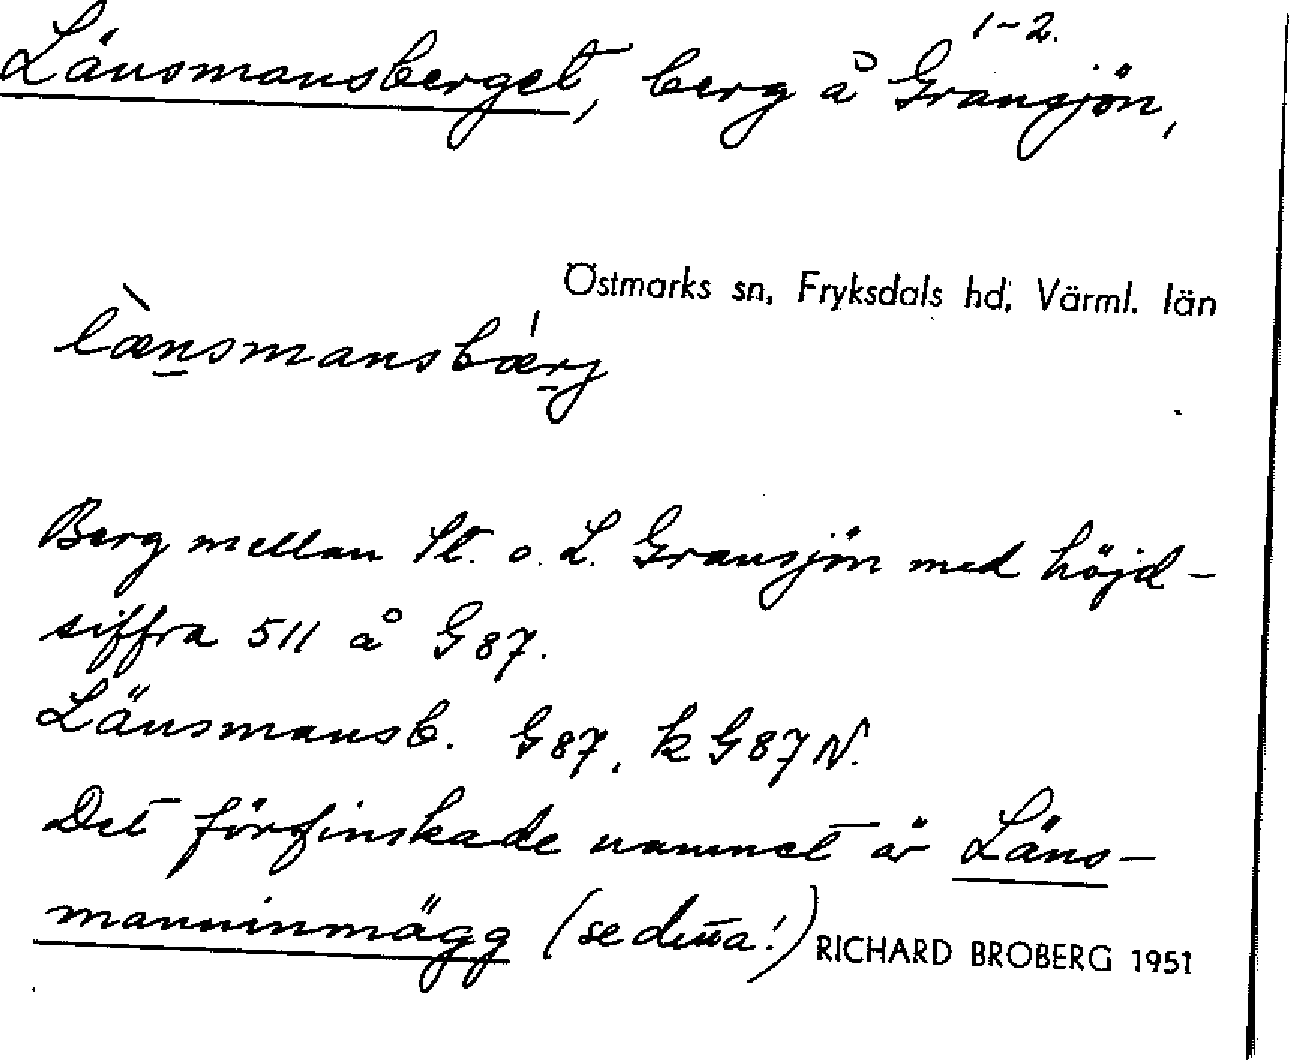 1-2.
Länsmansberget, berg å Gransjön,
Östmarks sn, Fryksdals hd, Värml. län
lænsmansbærj
Berg mellan St. o. L. Gransjön med höjd-
siffra 511 å G 87.
Länsmansb. G 87, k G 87 N.
Det förfinskade namnet är Läns-
manninmägg (se detta!)
RICHARD BROBERG 1951